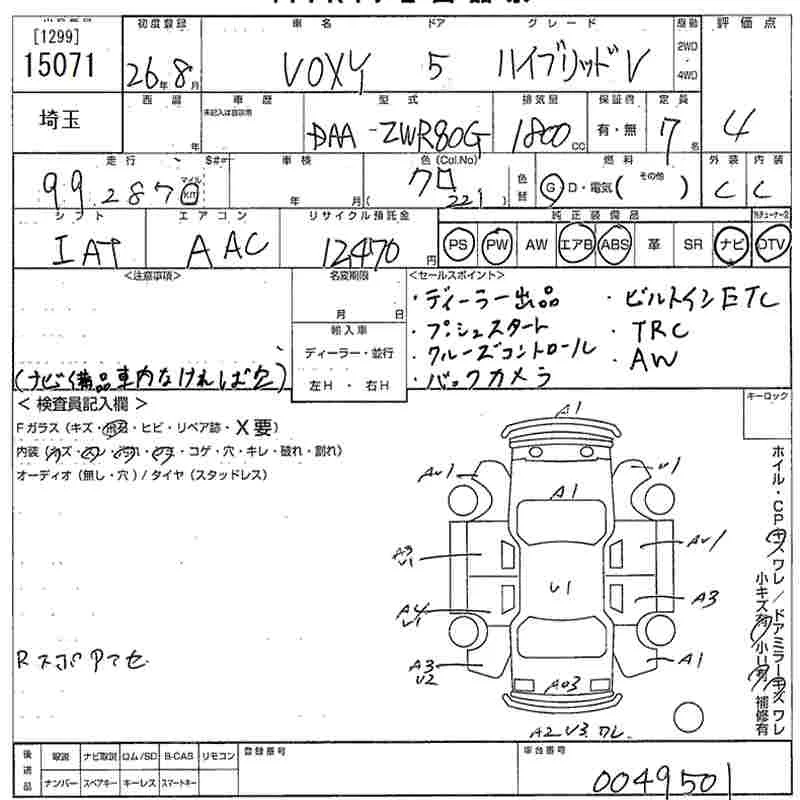 [1299]
15071
初度登録
車名
ドア
グレード
駆動
評価点
26年8月
VOXY
5
ハイブリッドV
2WD
4WD
4
埼玉
西暦
年
車歴
未記入は自家用
型式
DAA-ZWR80G
排気量
1800 CC
保証書
有・無
定員
7名
走行
S#=
99287
マイル
km
車検
年 月
色(Col.No)
クロ
( 221 )
色替
燃料
G D・電気( その他 )
外装
C
内装
C
シフト
IAT
エアコン
AAC
リサイクル預託金
12470円
純正装備品
PS PW AW エアB ABS 革 SR ナビ DTV
<注意事項>
(ナビ備品車内なければ欠)
名変期限
月 日
輸入車
ディーラー・並行
左H・右H
<セールスポイント>
・ディーラー出品
・ビルトインETC
・プッシュスタート
・TRC
・クルーズコントロール
・AW
・バックカメラ
<検査員記入欄>
キーロック
Fガラス(キズ・飛石・ヒビ・リペア跡・X要)
内装(キズ・スレ・汚れ・シミ・コゲ・穴・キレ・破れ・割れ)
オーディオ(無し・穴)/タイヤ(スタッドレス)
A1
AU1
U1
A1
A3
U1
AU1
U1
A4
U1
A3
A3
U2
A1
A03
A2 U3 ワレ
Rスポアマセ
ホイル・CPキズ ワレ/ドアミラーキズ ワレ
小キズ有/小U有/補修有
後送品
取説 ナビ取説 ロム/SD B-CAS リモコン
ナンバー スペアキー キーレス スマートキー
登録番号
車台番号
0049501